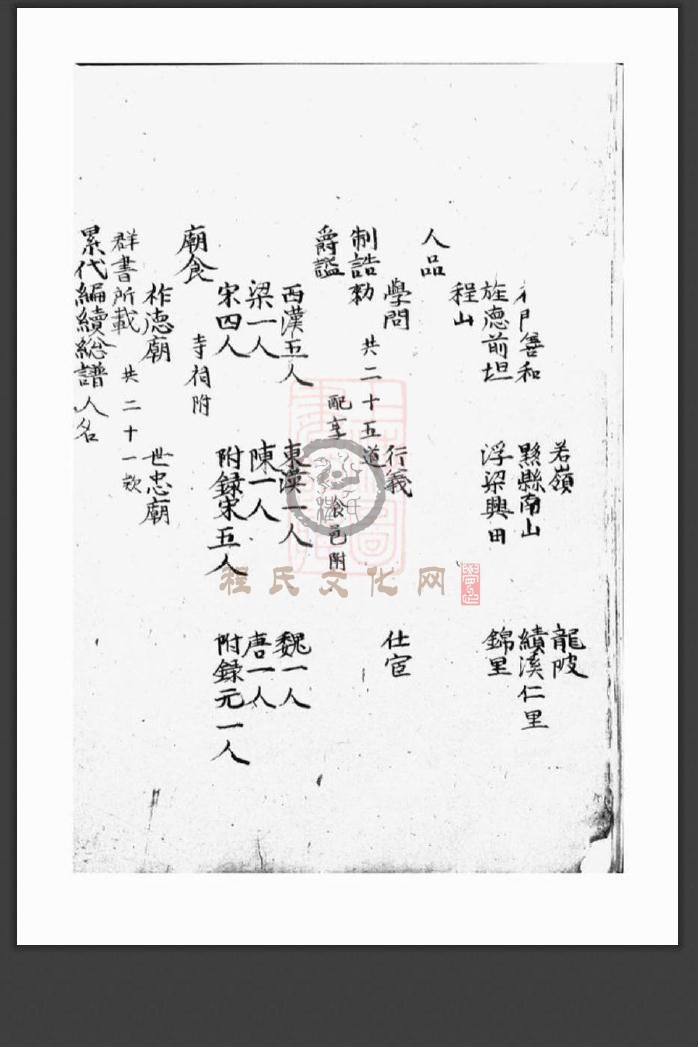 若嶺 龍陂
門善和 黟縣南山 績溪仁里
旌德前坦 浮梁興田 錦里
程山
人品
學問 行義 仕宦
制誥勑 共二十五道
爵諡 配享 食邑附
西漢五人 東漢一人 魏一人
梁一人 陳一人 唐一人
宋四人 附録宋五人 附録元一人
寺祠附
廟食
祚德廟 世忠廟
群書所載 共二十一款
累代編續総譜人名
程氏文化网